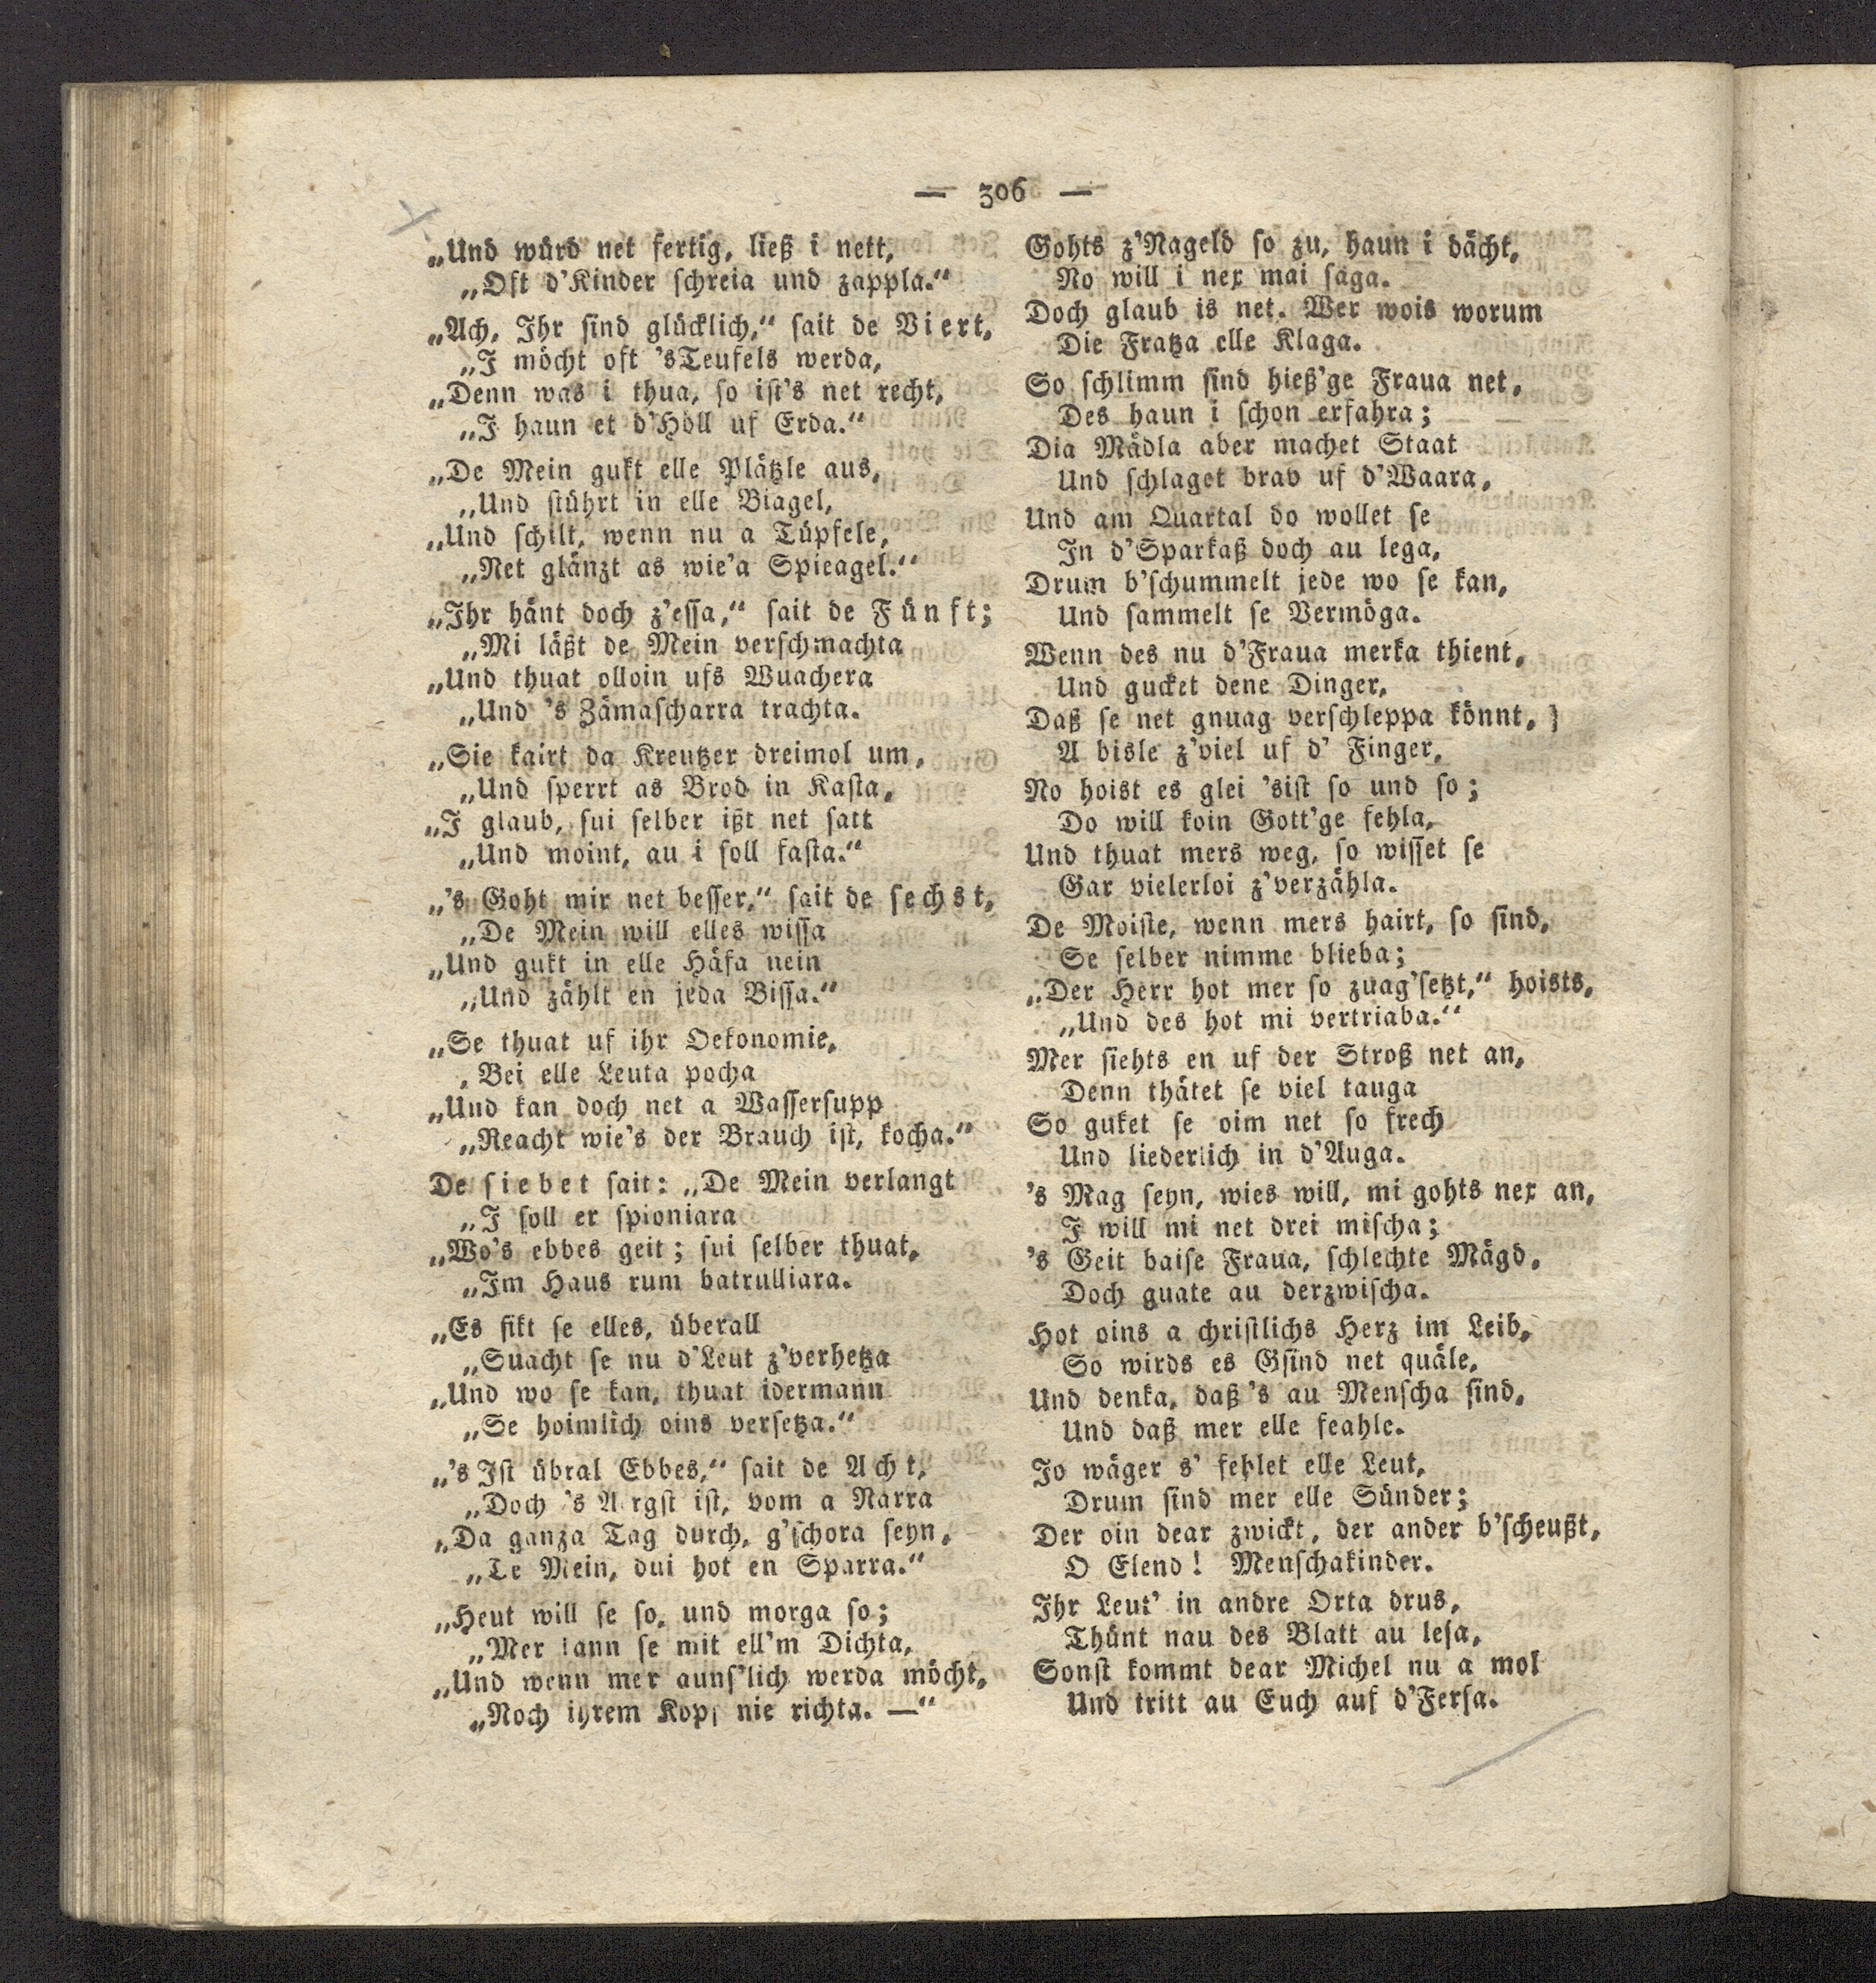 — 306 —
„Und würd net fertig, ließ i nett,
„Oft d'Kinder schreia und zappla.“
„Ach, Ihr sind glücklich,“ sait de Viert,
„I möcht oft 'sTeufels werda,
„Denn was i thua, so ist's net recht,
„I haun et d'Höll uf Erda.“
„De Mein gukt elle Plätzle aus,
„Und stührt in elle Biagel,
„Und schilt, wenn nu a Tüpfele,
„Net glänzt as wie'a Spieagel.“
„Ihr hänt doch z'essa,“ sait de Fünft;
„Mi läßt de Mein verschmachta
„Und thuat olloin ufs Wuachera
„Und 's Zämascharra trachta.
„Sie kairt da Kreutzer dreimol um,
„Und sperrt as Brod in Kasta,
„I glaub, sui selber ißt net satt
„Und moint, au i soll fasta.“
„'s Goht mir net besser,“ sait de sechst,
„De Mein will elles wissa
„Und gukt in elle Häfa nein
„Und zählt en jeda Bissa.“
„Se thuat uf ihr Oekonomie,
„Bei elle Leuta pocha
„Und kan doch net a Wassersupp
„Reacht wie's der Brauch ist, kocha.“
De siebet sait: „De Mein verlangt
„I soll er spioniara
„Wo's ebbes geit; sui selber thuat,
„Im Haus rum batrulliara.
„Es fikt se elles, überall
„Suacht se nu d'Leut z'verhetza
„Und wo se kan, thuat idermann
„Se hoimlich oins versetza.“
„'s Ist übral Ebbes,“ sait de Acht,
„Doch 's Aergst ist, vom a Narra
„Da ganza Tag durch, g'schora seyn,
„De Mein, dui hot en Sparra.“
„Heut will se so, und morga so;
„Mer kann se mit ell'm Dichta,
„Und wenn mer auns'lich werda möcht,
„Noch ihrem Kopf nie richta. —“
Gohts z'Nageld so zu, haun i dächt,
No will i nex mai saga.
Doch glaub is net. Wer wois worum
Die Fratza elle Klaga.
So schlimm sind hieß'ge Fraua net,
Des haun i schon erfahra;
Dia Mädla aber machet Staat
Und schlaget brav uf d'Waara,
Und am Quartal do wollet se
In d'Sparkaß doch au lega,
Drum b'schummelt jede wo se kan,
Und sammelt se Vermöga.
Wenn des nu d'Fraua merka thient,
Und gucket dene Dinger,
Daß se net gnuag verschleppa könnt,
A bisle z'viel uf d' Finger,
No hoist es glei 'sist so und so;
Do will koin Gott'ge fehla,
Und thuat mers weg, so wisset se
Gar vielerloi z'verzähla.
De Moiste, wenn mers hairt, so sind,
Se selber nimme blieba;
„Der Herr hot mer so zuag'setzt,“ hoists,
„Und des hot mi vertriaba.“
Mer siehts en uf der Stroß net an,
Denn thätet se viel tauga
So guket se oim net so frech
Und liederlich in d'Auga.
's Mag seyn, wies will, mi gohts nex an,
I will mi net drei mischa;
's Geit baise Fraua, schlechte Mägd,
Doch guate au derzwischa.
Hot oins a christlichs Herz im Leib,
So wirds es Gsind net quäle,
Und denka, daß's au Menscha sind,
Und daß mer elle feahle.
Jo wäger s' fehlet elle Leut,
Drum sind mer elle Sünder;
Der oin dear zwickt, der ander b'scheußt,
O Elend! Menschakinder.
Ihr Leut' in andre Orta drus,
Thänt nau des Blatt au lesa,
Sonst kommt dear Michel nu a mol
Und tritt au Euch auf d'Fersa.